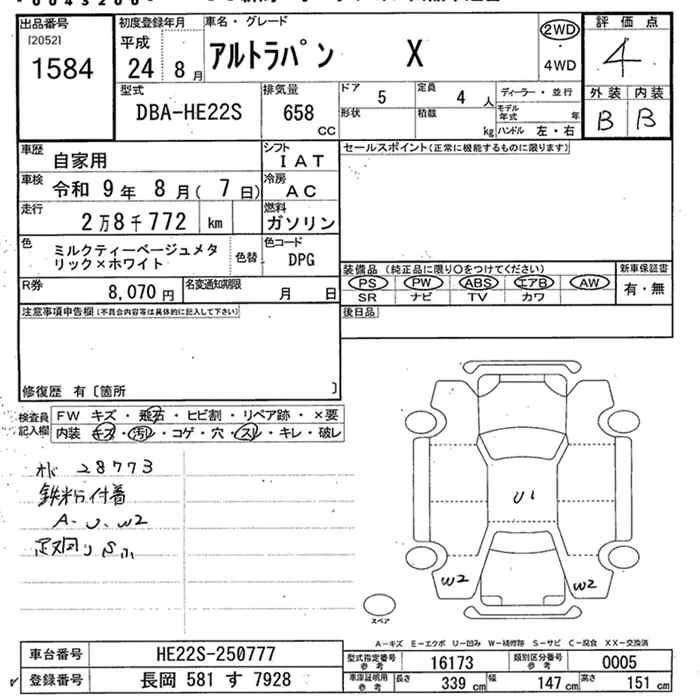 出品番号 初度登録年月 車名・グレード 評価点
[2052] 平成 アルトラパン X 2WD 4
1584 24 8月 4WD
型式 排気量 ドア 5 定員 4人 ディーラー・並行 外装 内装
DBA-HE22S 658 cc 形状 積載 kg モデル年式 年 B B
ハンドル 左・右
車歴 自家用 シフト IAT セールスポイント(正常に機能するものに限ります)
車検 令和 9年 8月(7日) 冷房 AC
走行 2万8千772 km 燃料 ガソリン
色 ミルクティーベージュメタリック×ホワイト 色替 色コード DPG
装備品 (純正品に限り○をつけてください) 新車保証書
PS PW ABS エアB AW 有・無
SR ナビ TV カワ
R券 8,070円 名変通知期限 月 日
注意事項申告欄(不具合内容等は具体的に記入して下さい) 後日品
修復歴 有〔箇所 〕
検査員記入欄 FW キズ・飛石・ヒビ割・リペア跡・×要
内装 キズ・汚れ・コゲ・穴・スレ・キレ・破レ
28773
鉄粉付着
A-U、W2
足廻りSふ
U1
W2 W2
スペア
A-キズ E-エクボ U-凹み W-補修跡 S-サビ C-腐食 XX-交換済
車台番号 HE22S-250777 型式指定番号参考 16173 類別区分番号参考 0005
登録番号 長岡 581 す 7928 車庫証明用参考 長さ 339 cm 幅 147 cm 高さ 151 cm